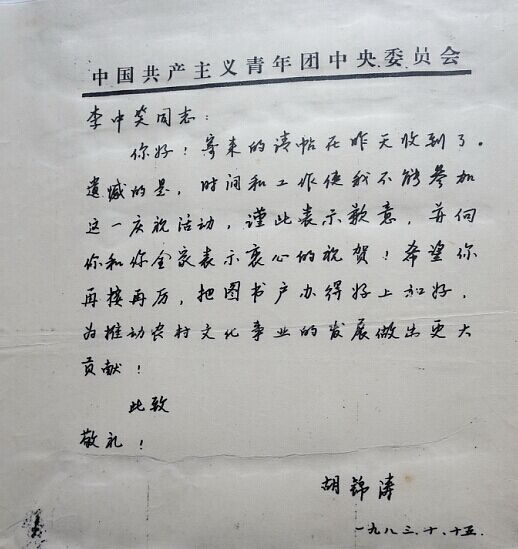 中国共产主义青年团中央委员会
李中笑同志:
你好!寄来的请帖在昨天收到了。
遗憾的是,时间和工作使我不能参加
这一庆祝活动,谨此表示歉意,并向
你和你全家表示衷心的祝贺!希望你
再接再厉,把图书户办得好上加好,
为推动农村文化事业的发展做出更大
贡献!
此致
敬礼!
胡锦涛
一九八三.十.十五.